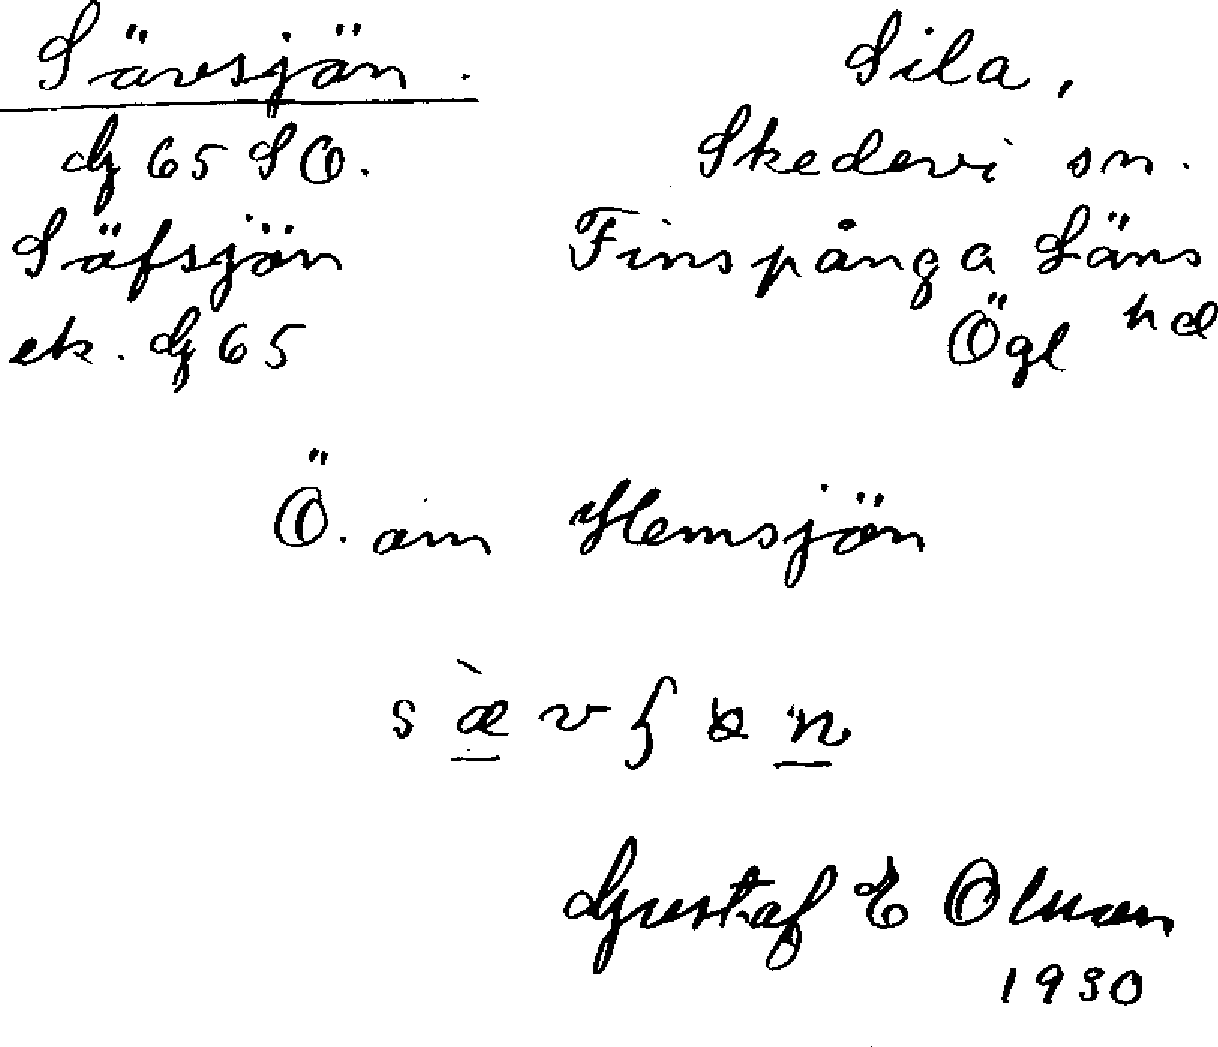 Sävsjön.
dg 65 SO.
Säfsjön
ek. dg 65
Sila,
Skedevi sn.
Finspånga Läns
hd
Ögl
Ö. om Hemsjön
Gustaf E Olsson
1930